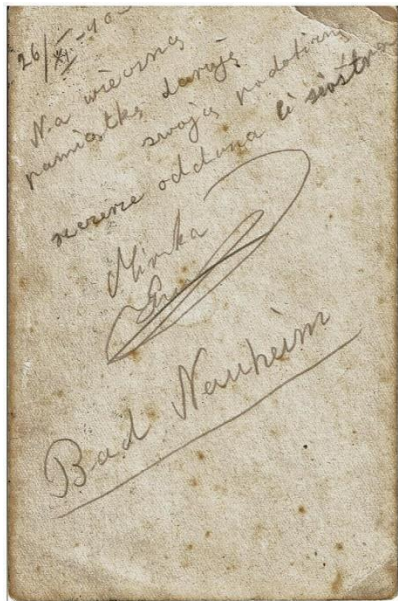 26/XI-40
Na wieczną
pamiątkę daruję
swoją podobiznę
szczerze oddana Ci siostra
Mirka
Bad Nauheim